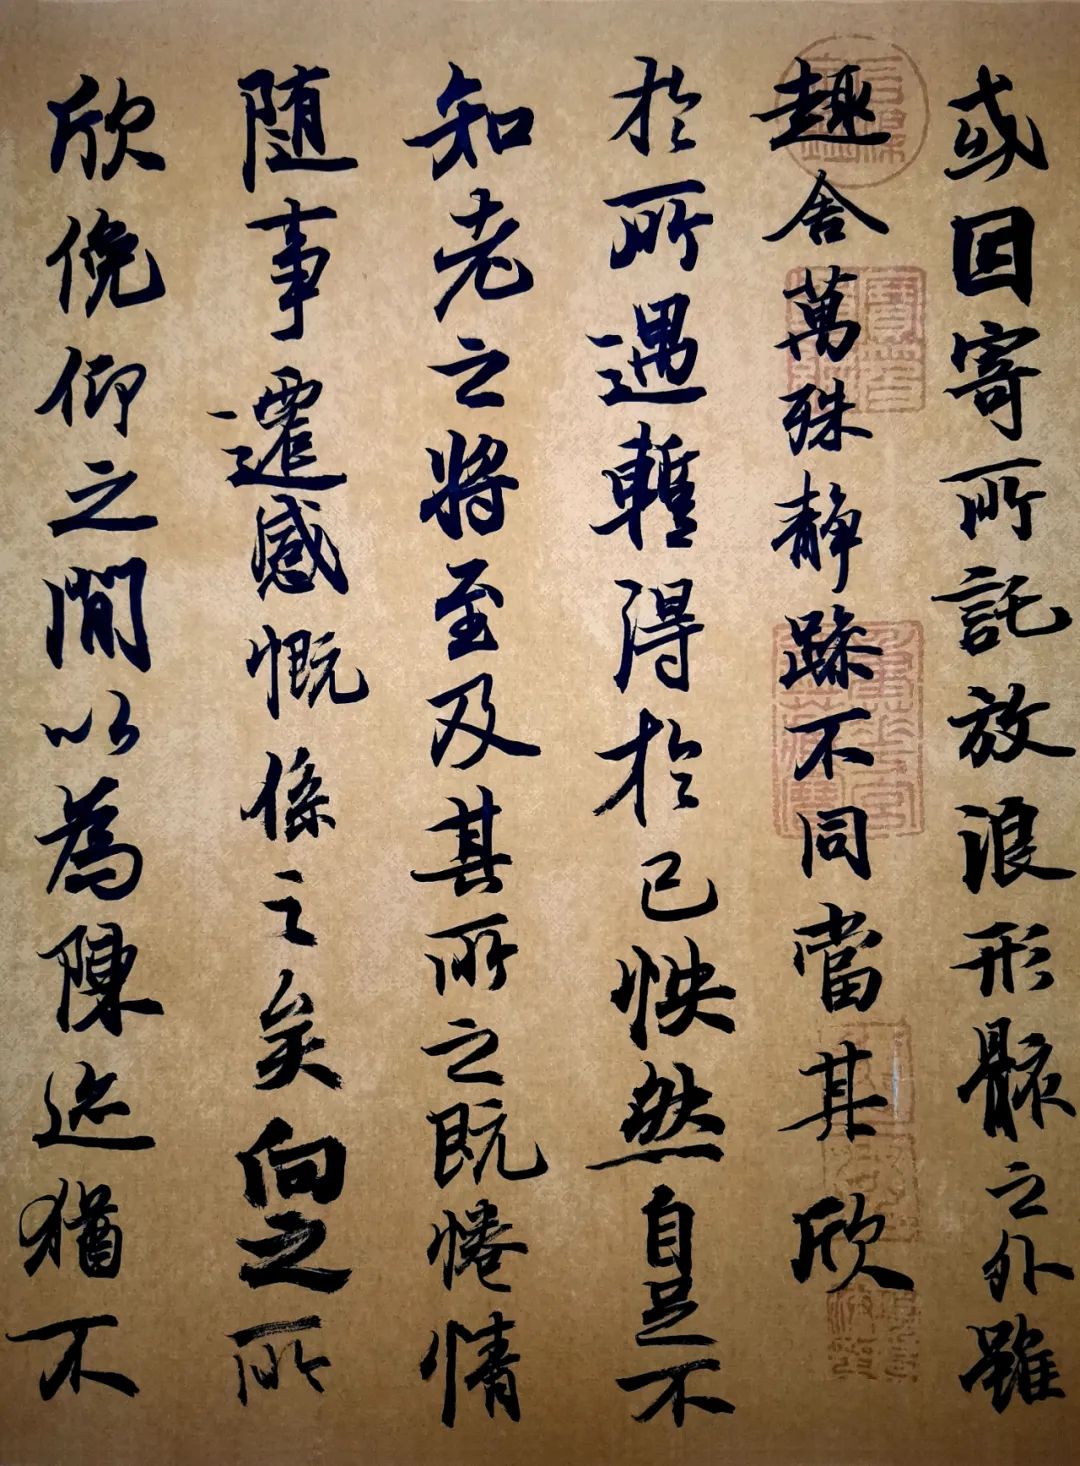 或因寄所託放浪形骸之外雖
趣舍萬殊静躁不同當其欣
於所遇暫得於己怏然自足不
知老之將至及其所之既惓情
随事遷感慨係之矣向之所
欣俛仰之閒以為陳迹猶不